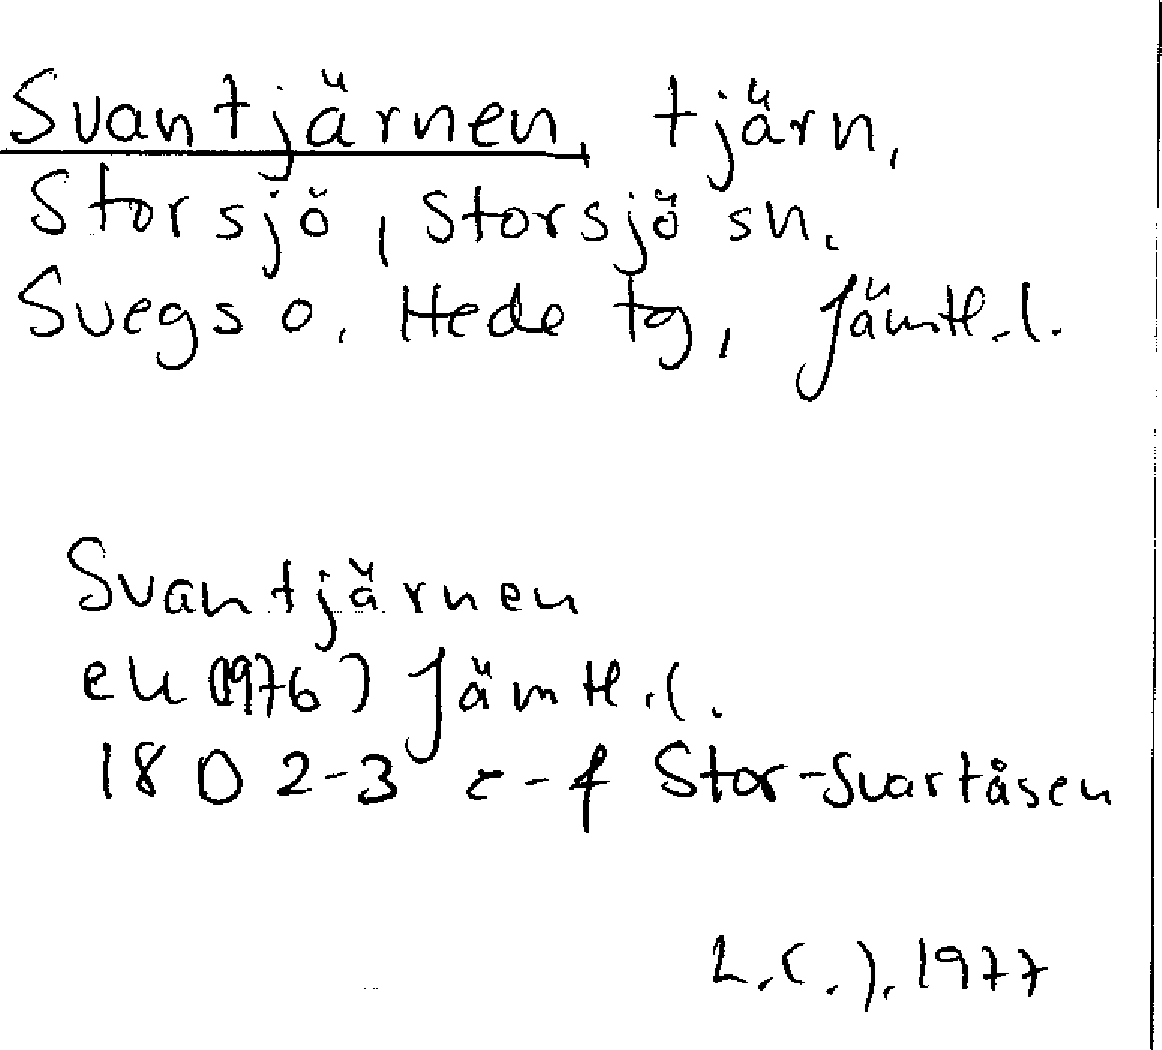 Svantjärnen, tjärn,
Storsjö, Storsjö sn.
Svegs o. Hede tg, Jämtl.l.
Svantjärnen
ek (1976) Jämtl.l.
18 D 2-3 c-f Stor-Svartåsen
L.C.J. 1977